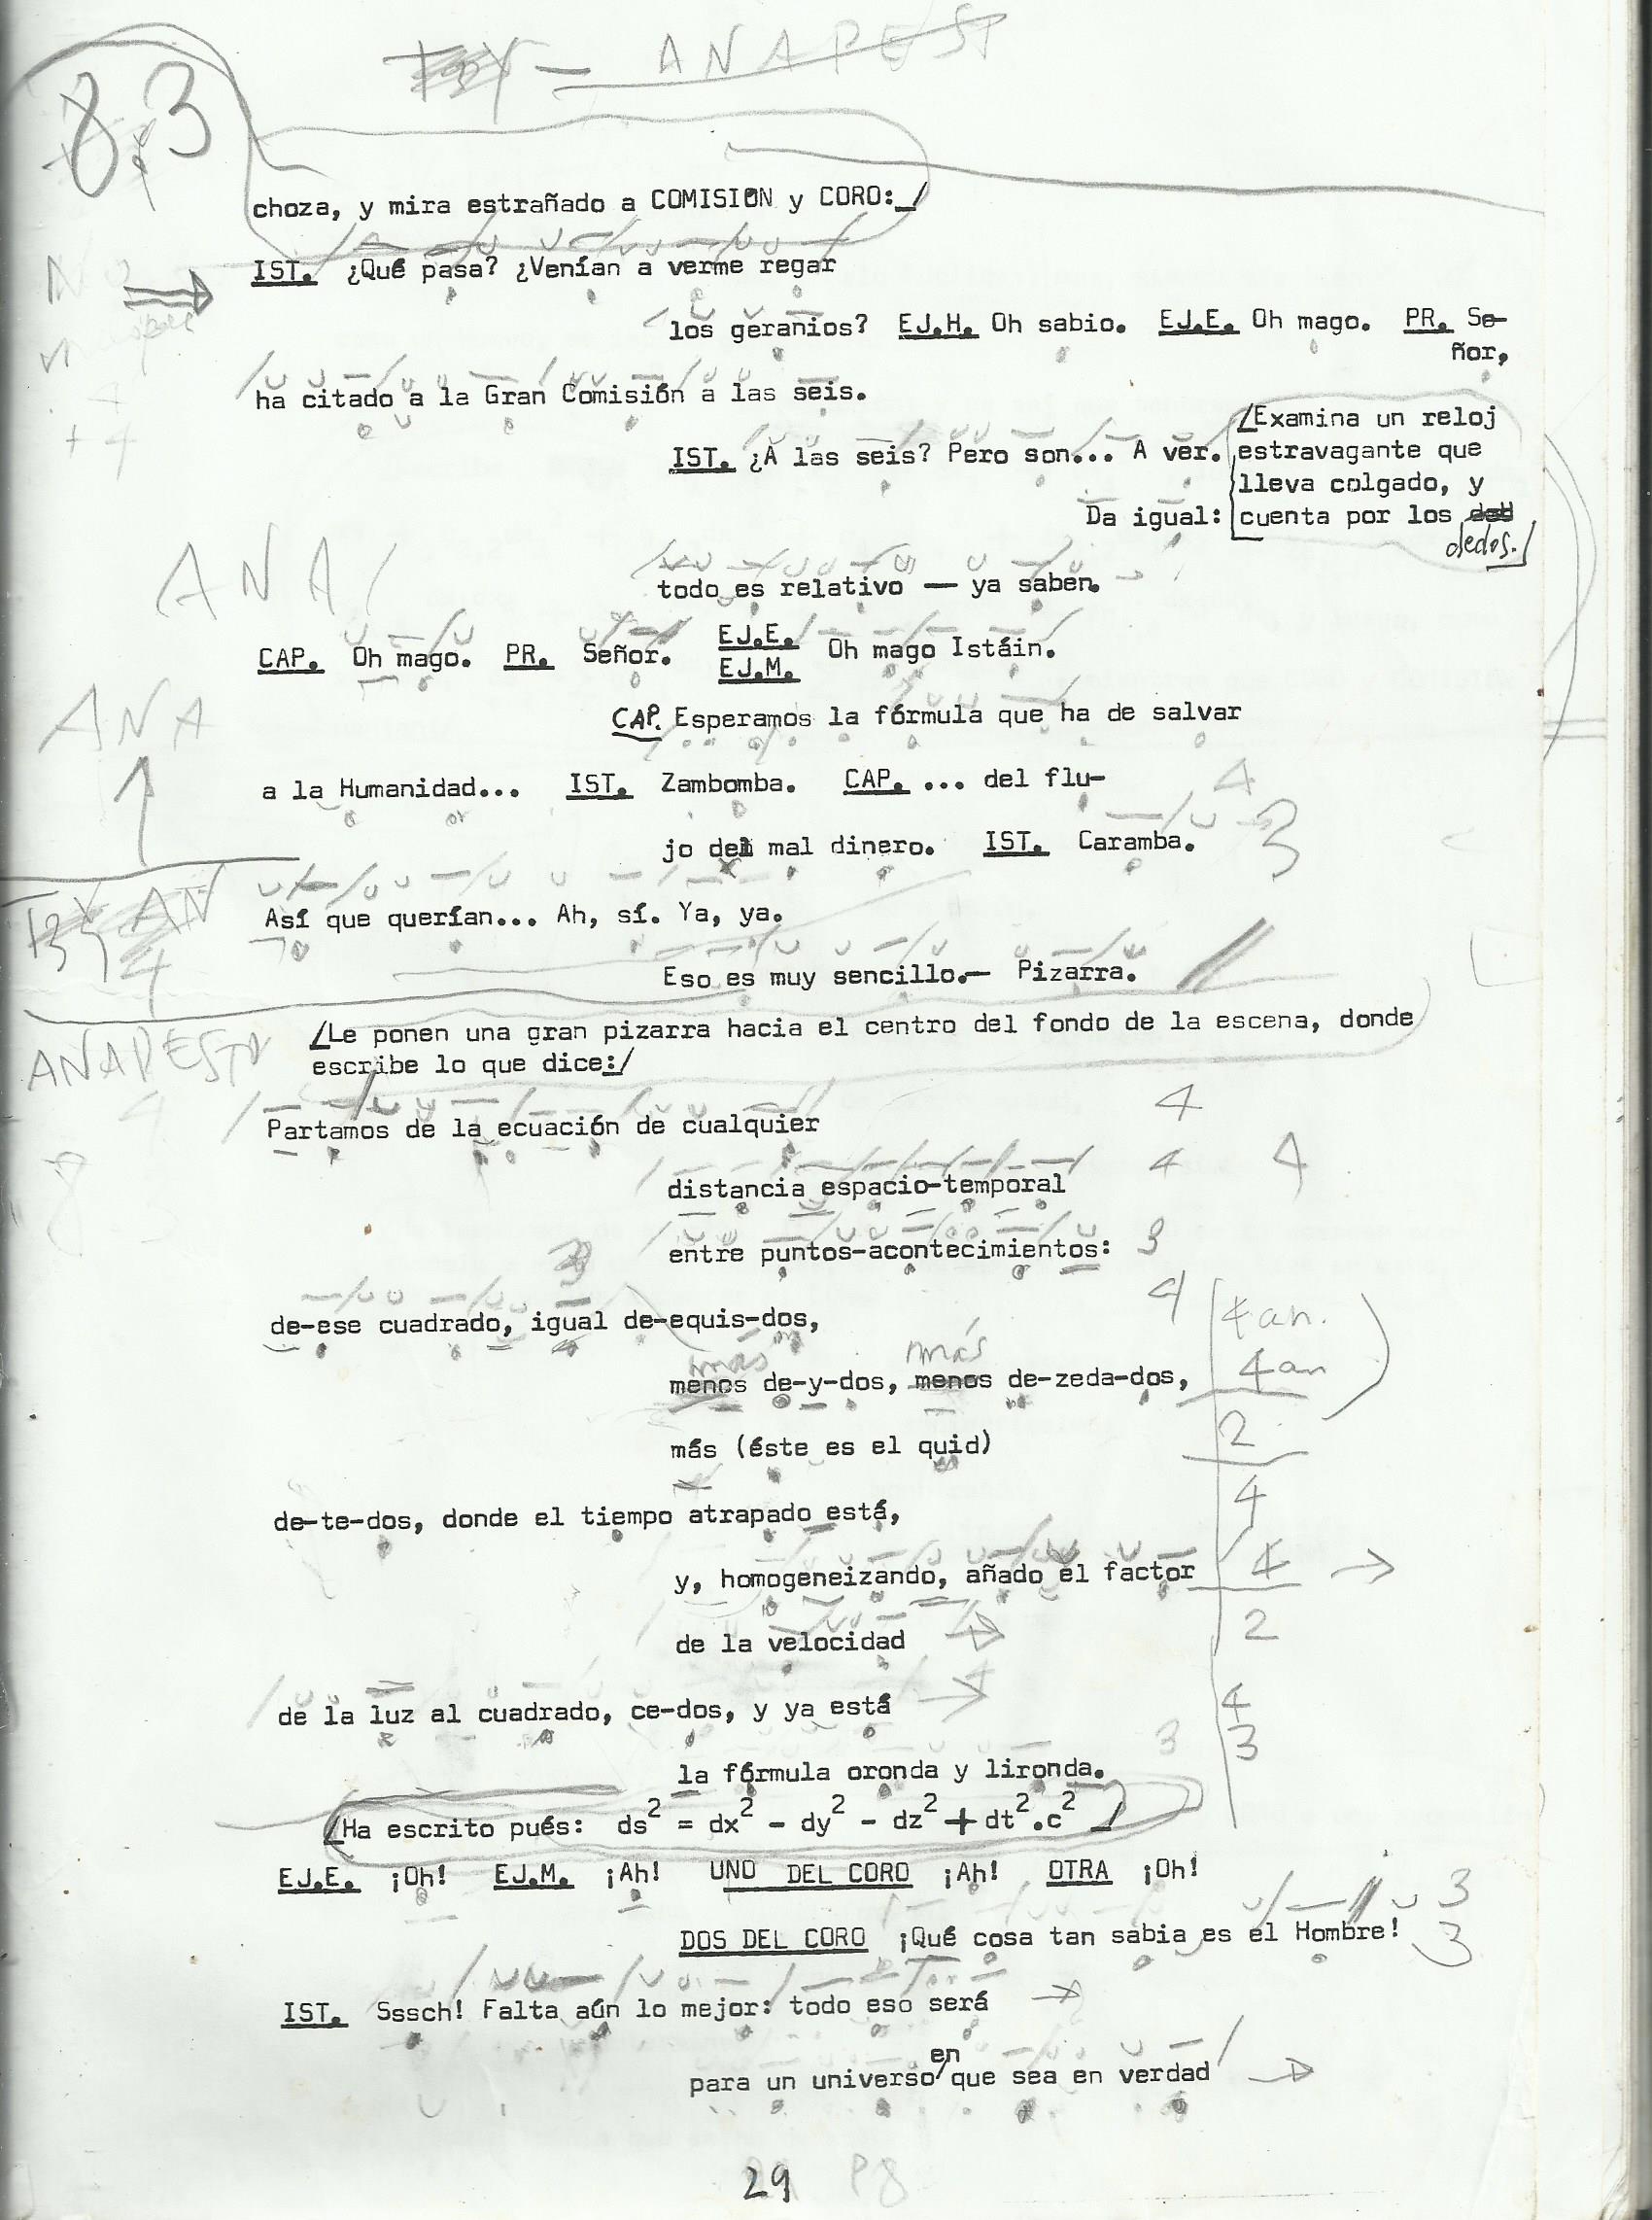 ANAPEST
8,3
choza, y mira estrañado a COMISION y CORO:_/
IST. ¿Qué pasa? ¿Venían a verme regar
los geranios? EJ.H. Oh sabio. EJ.E. Oh mago. PR. Se-
ñor,
ha citado a la Gran Comisión a las seis.
+4
/Examina un reloj
IST. ¿A las seis? Pero son... A ver. estravagante que
lleva colgado, y
Da igual: cuenta por los ded
dedos./
todo es relativo — ya saben.
ANA/
CAP. Oh mago. PR. Señor. EJ.E. Oh mago Istáin.
EJ.M.
ANA
CAP. Esperamos la fórmula que ha de salvar
a la Humanidad... IST. Zambomba. CAP. ... del flu- 4
jo del mal dinero. IST. Caramba. 3
AN
Así que querían... Ah, sí. Ya, ya.
4
Eso es muy sencillo.— Pizarra.
ANAPESTO
/Le ponen una gran pizarra hacia el centro del fondo de la escena, donde
escribe lo que dice:/
Partamos de la ecuación de cualquier 4
distancia espacio-temporal 4 4
entre puntos-acontecimientos: 3
de-ese cuadrado, igual de-equis-dos, 4 4 an.
más más
menos de-y-dos, menos de-zeda-dos, 4 an
más (éste es el quid) 2
de-te-dos, donde el tiempo atrapado está, 4
y, homogeneizando, añado el factor 4
de la velocidad 2
de la luz al cuadrado, ce-dos, y ya está 4
la fórmula oronda y lironda. 3 3
/Ha escrito pués: ds² = dx² - dy² - dz² + dt².c² _/
EJ.E. ¡Oh! EJ.M. ¡Ah! UNO DEL CORO ¡Ah! OTRA ¡Oh!
3
DOS DEL CORO ¡Qué cosa tan sabia es el Hombre! 3
IST. Sssch! Falta aún lo mejor: todo eso será
en
para un universo/que sea en verdad
29 P8